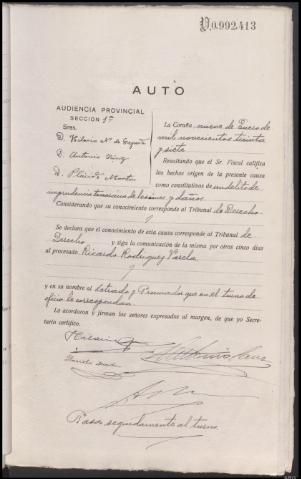 D.0.992.413
AUTO
AUDIENCIA PROVINCIAL
SECCION 1ª
Sres.
D. Hilario Nª de
D. Antonio
D. Plácido Martin
La Coruña, nueve de Enero de
mil novecientos treinta
y siete
Resultando que el Sr. Fiscal califica
los hechos origen de la presente causa
como constitutivos de un delito de
imprudencia temeraria de lesiones y daños.
Considerando que su conocimiento corresponde al Tribunal de Derecho.
Se declara que el conocimiento de esta causa corresponde al Tribunal de
Derecho y siga la comunicación de la misma por otros cinco días
al procesado, Ricardo Rodríguez Varela
y en su nombre al Letrado y Procurador que en el turno de
oficio le correspondan.
La acordaron y firman los señores expresados al margen, de que yo Secretario
certifico.
Pasos seguidamente al turno.